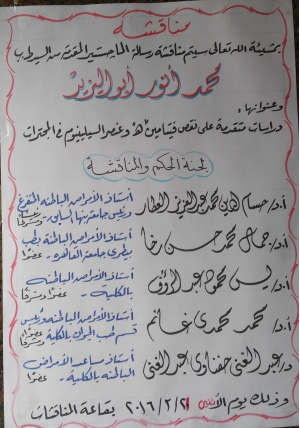 مناقشة
بمشيئة الله تعالى سيتم مناقشة رسالة الماجستير المقدمة من السيد ط.ب
محمد أنور أبو اليزيد
وعنوانها:
دراسات متقدمة على نقص فيتامين هـ وعنصر السيلينيوم فى المجترات
لجنة الحكم والمناقشة
أ.د/ حسام الدين محمد عبد العزيز العطار أستاذ الأمراض الباطنة المتفرغ
ورئيس جامعة بنها السابق - رئيسا ومشرفا
أ.د/ جمال محمد حسن رخا أستاذ الأمراض الباطنة بطب
بيطرى جامعة القاهرة - عضوا
أ.د/ يس محمود عبد الرؤف أستاذ الأمراض الباطنة
بالكلية - عضوا ومشرفا
أ.د/ محمد محمدى غانم أستاذ الأمراض الباطنة ورئيس
قسم طب الحيوان بالكلية - عضوا ومشرفا
د/ عبد الغنى حفناوى عبد الغنى أستاذ مساعد الأمراض
الباطنة بالكلية - عضوا
وذلك يوم الأثنين ٢٠١٦/٢/٢ بقاعة المناقشات